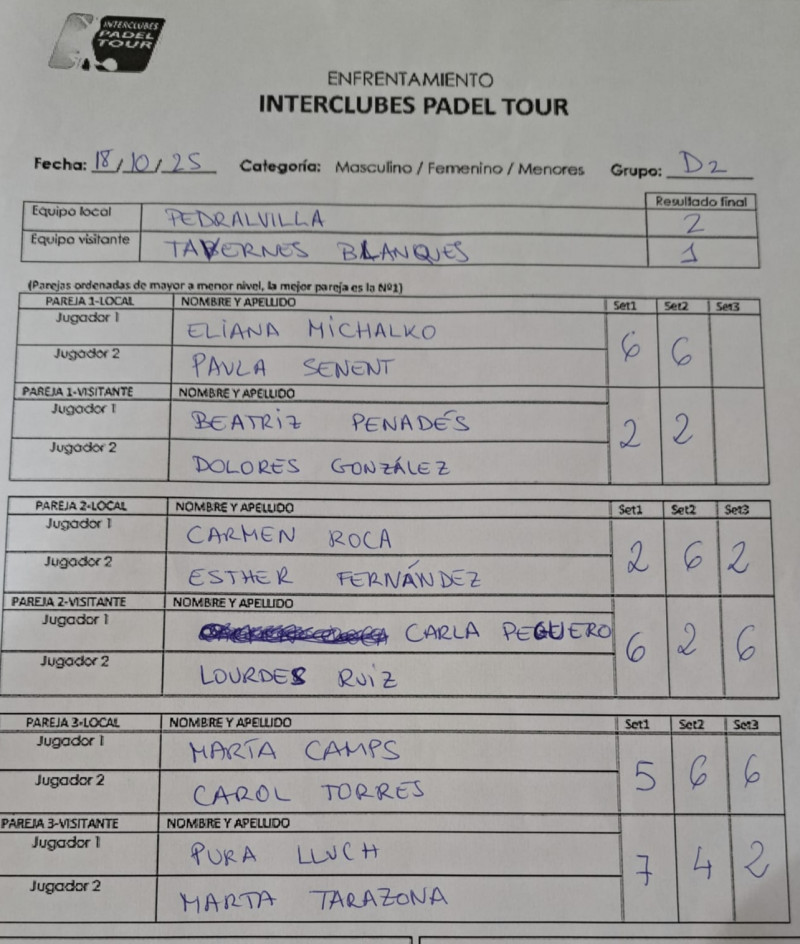 INTERCLUBES
PADEL
TOUR
ENFRENTAMIENTO
INTERCLUBES PADEL TOUR
Fecha: 18/10/25 Categoría: Masculino / Femenino / Menores Grupo: D2
Resultado final
Equipo local PEDRALVILLA 2
Equipo visitante TAVERNES BLANQUES 1
(Parejas ordenadas de mayor a menor nivel, la mejor pareja es la Nº1)
PAREJA 1-LOCAL NOMBRE Y APELLIDO Set1 Set2 Set3
Jugador 1 ELIANA MICHALKO
6 6
Jugador 2 PAULA SENENT
PAREJA 1-VISITANTE NOMBRE Y APELLIDO
Jugador 1 BEATRIZ PENADÉS
2 2
Jugador 2 DOLORES GONZÁLEZ
PAREJA 2-LOCAL NOMBRE Y APELLIDO Set1 Set2 Set3
Jugador 1 CARMEN ROCA
2 6 2
Jugador 2 ESTHER FERNÁNDEZ
PAREJA 2-VISITANTE NOMBRE Y APELLIDO
Jugador 1 CARLA PEGUERO
6 2 6
Jugador 2 LOURDES RUIZ
PAREJA 3-LOCAL NOMBRE Y APELLIDO Set1 Set2 Set3
Jugador 1 MARTA CAMPS
5 6 6
Jugador 2 CAROL TORRES
PAREJA 3-VISITANTE NOMBRE Y APELLIDO
Jugador 1 PURA LLUCH
7 4 2
Jugador 2 MARTA TARAZONA